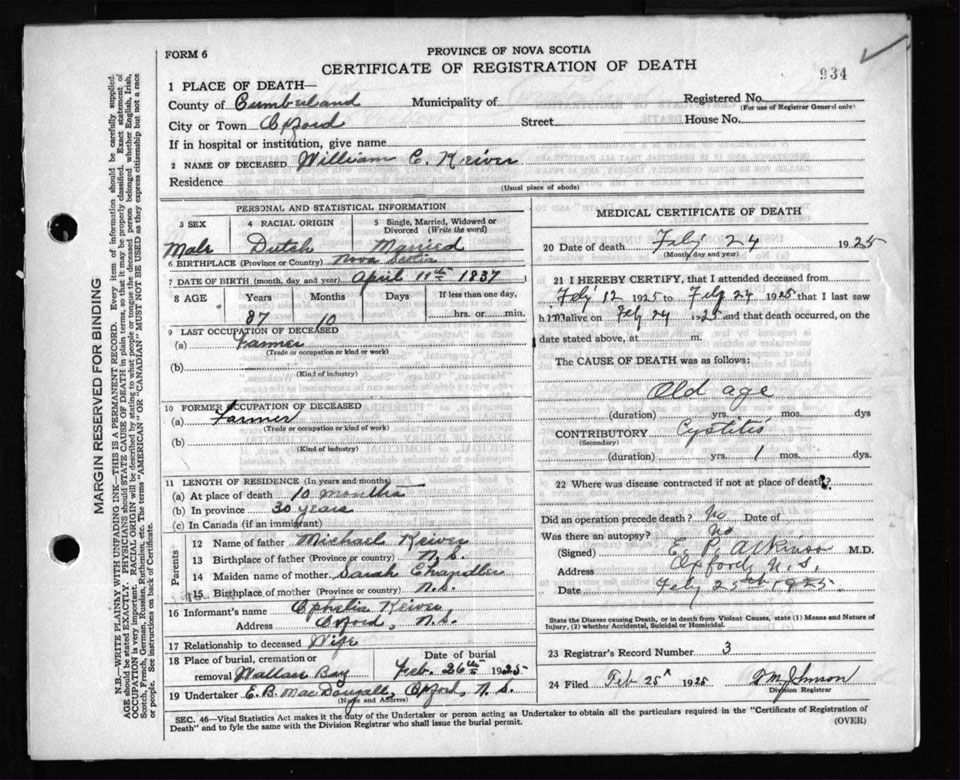 FORM 6
PROVINCE OF NOVA SCOTIA
CERTIFICATE OF REGISTRATION OF DEATH
934
1 PLACE OF DEATH—
County of Cumberland Municipality of Registered No.
(For use of Registrar General only)
City or Town Oxford Street House No.
If in hospital or institution, give name
2 NAME OF DECEASED William C. Keiver
Residence
(Usual place of abode)
PERSONAL AND STATISTICAL INFORMATION
3 SEX 4 RACIAL ORIGIN 5 Single, Married, Widowed or Divorced (Write the word)
Male Dutch Married
6 BIRTHPLACE (Province or Country) Nova Scotia
7 DATE OF BIRTH (month, day and year) April 11th 1837
8 AGE Years Months Days If less than one day,
87 10 hrs. or min.
9 LAST OCCUPATION OF DECEASED
(a) Farmer
(Trade or occupation or kind or work)
(b)
(Kind of industry)
10 FORMER OCCUPATION OF DECEASED
(a) Farmer
(Trade or occupation or kind or work)
(b)
(Kind of industry)
11 LENGTH OF RESIDENCE (In years and months)
(a) At place of death 10 months
(b) In province 30 years
(c) In Canada (if an immigrant)
Parents
12 Name of father Michael Keiver
13 Birthplace of father (Province or country) N.S.
14 Maiden name of mother Sarah Chandler
15 Birthplace of mother (Province or country) N.S.
16 Informant's name Ophelia Keiver,
Address Oxford, N.S.
17 Relationship to deceased Wife
18 Place of burial, cremation or removal Wallace Bay Date of burial Feb. 26th 1925
19 Undertaker E. B. MacDougall, Oxford, N. S.
(Name and Address)
MEDICAL CERTIFICATE OF DEATH
20 Date of death Feby 24 1925
(Month, day and year)
21 I HEREBY CERTIFY, that I attended deceased from
Feby 12 1925 to Feby 24 1925 that I last saw
him alive on Feby 24 1925 and that death occurred, on the
date stated above, at m.
The CAUSE OF DEATH was as follows:
Old age
(duration) yrs. mos. dys
CONTRIBUTORY Cystitis
(Secondary)
(duration) yrs. 1 mos. dys.
22 Where was disease contracted if not at place of death?
Did an operation precede death? No Date of
Was there an autopsy? No
(Signed) E. P. Atkinson M.D.
Address Oxford, N.S.
Date Feby 25th 1925
State the Disease causing Death, or in death from Violent Causes, state (1) Means and Nature of Injury, (2) whether Accidental, Suicidal or Homicidal.
23 Registrar's Record Number 3
24 Filed Feb 25 1925 Johnson
Division Registrar
SEC. 46—Vital Statistics Act makes it the duty of the Undertaker or person acting as Undertaker to obtain all the particulars required in the "Certificate of Registration of
Death" and to fyle the same with the Division Registrar who shall issue the burial permit. (OVER)
MARGIN RESERVED FOR BINDING
N.B.—WRITE PLAINLY WITH UNFADING INK—THIS IS A PERMANENT RECORD. Every item of information should be carefully supplied.
AGE should be stated EXACTLY. PHYSICIANS should STATE CAUSE OF DEATH in plain terms, so that it may be properly classified. Exact statement of
OCCUPATION is very important. RACIAL ORIGIN will be described by stating to what people or tongue the deceased person belonged, whether English, Irish,
Scotch, French, German, Russian, Ruthenian, etc. The terms "AMERICAN" OR "CANADIAN" MUST NOT BE USED as they express citizenship but not a race
or people. See instructions on back of Certificate.